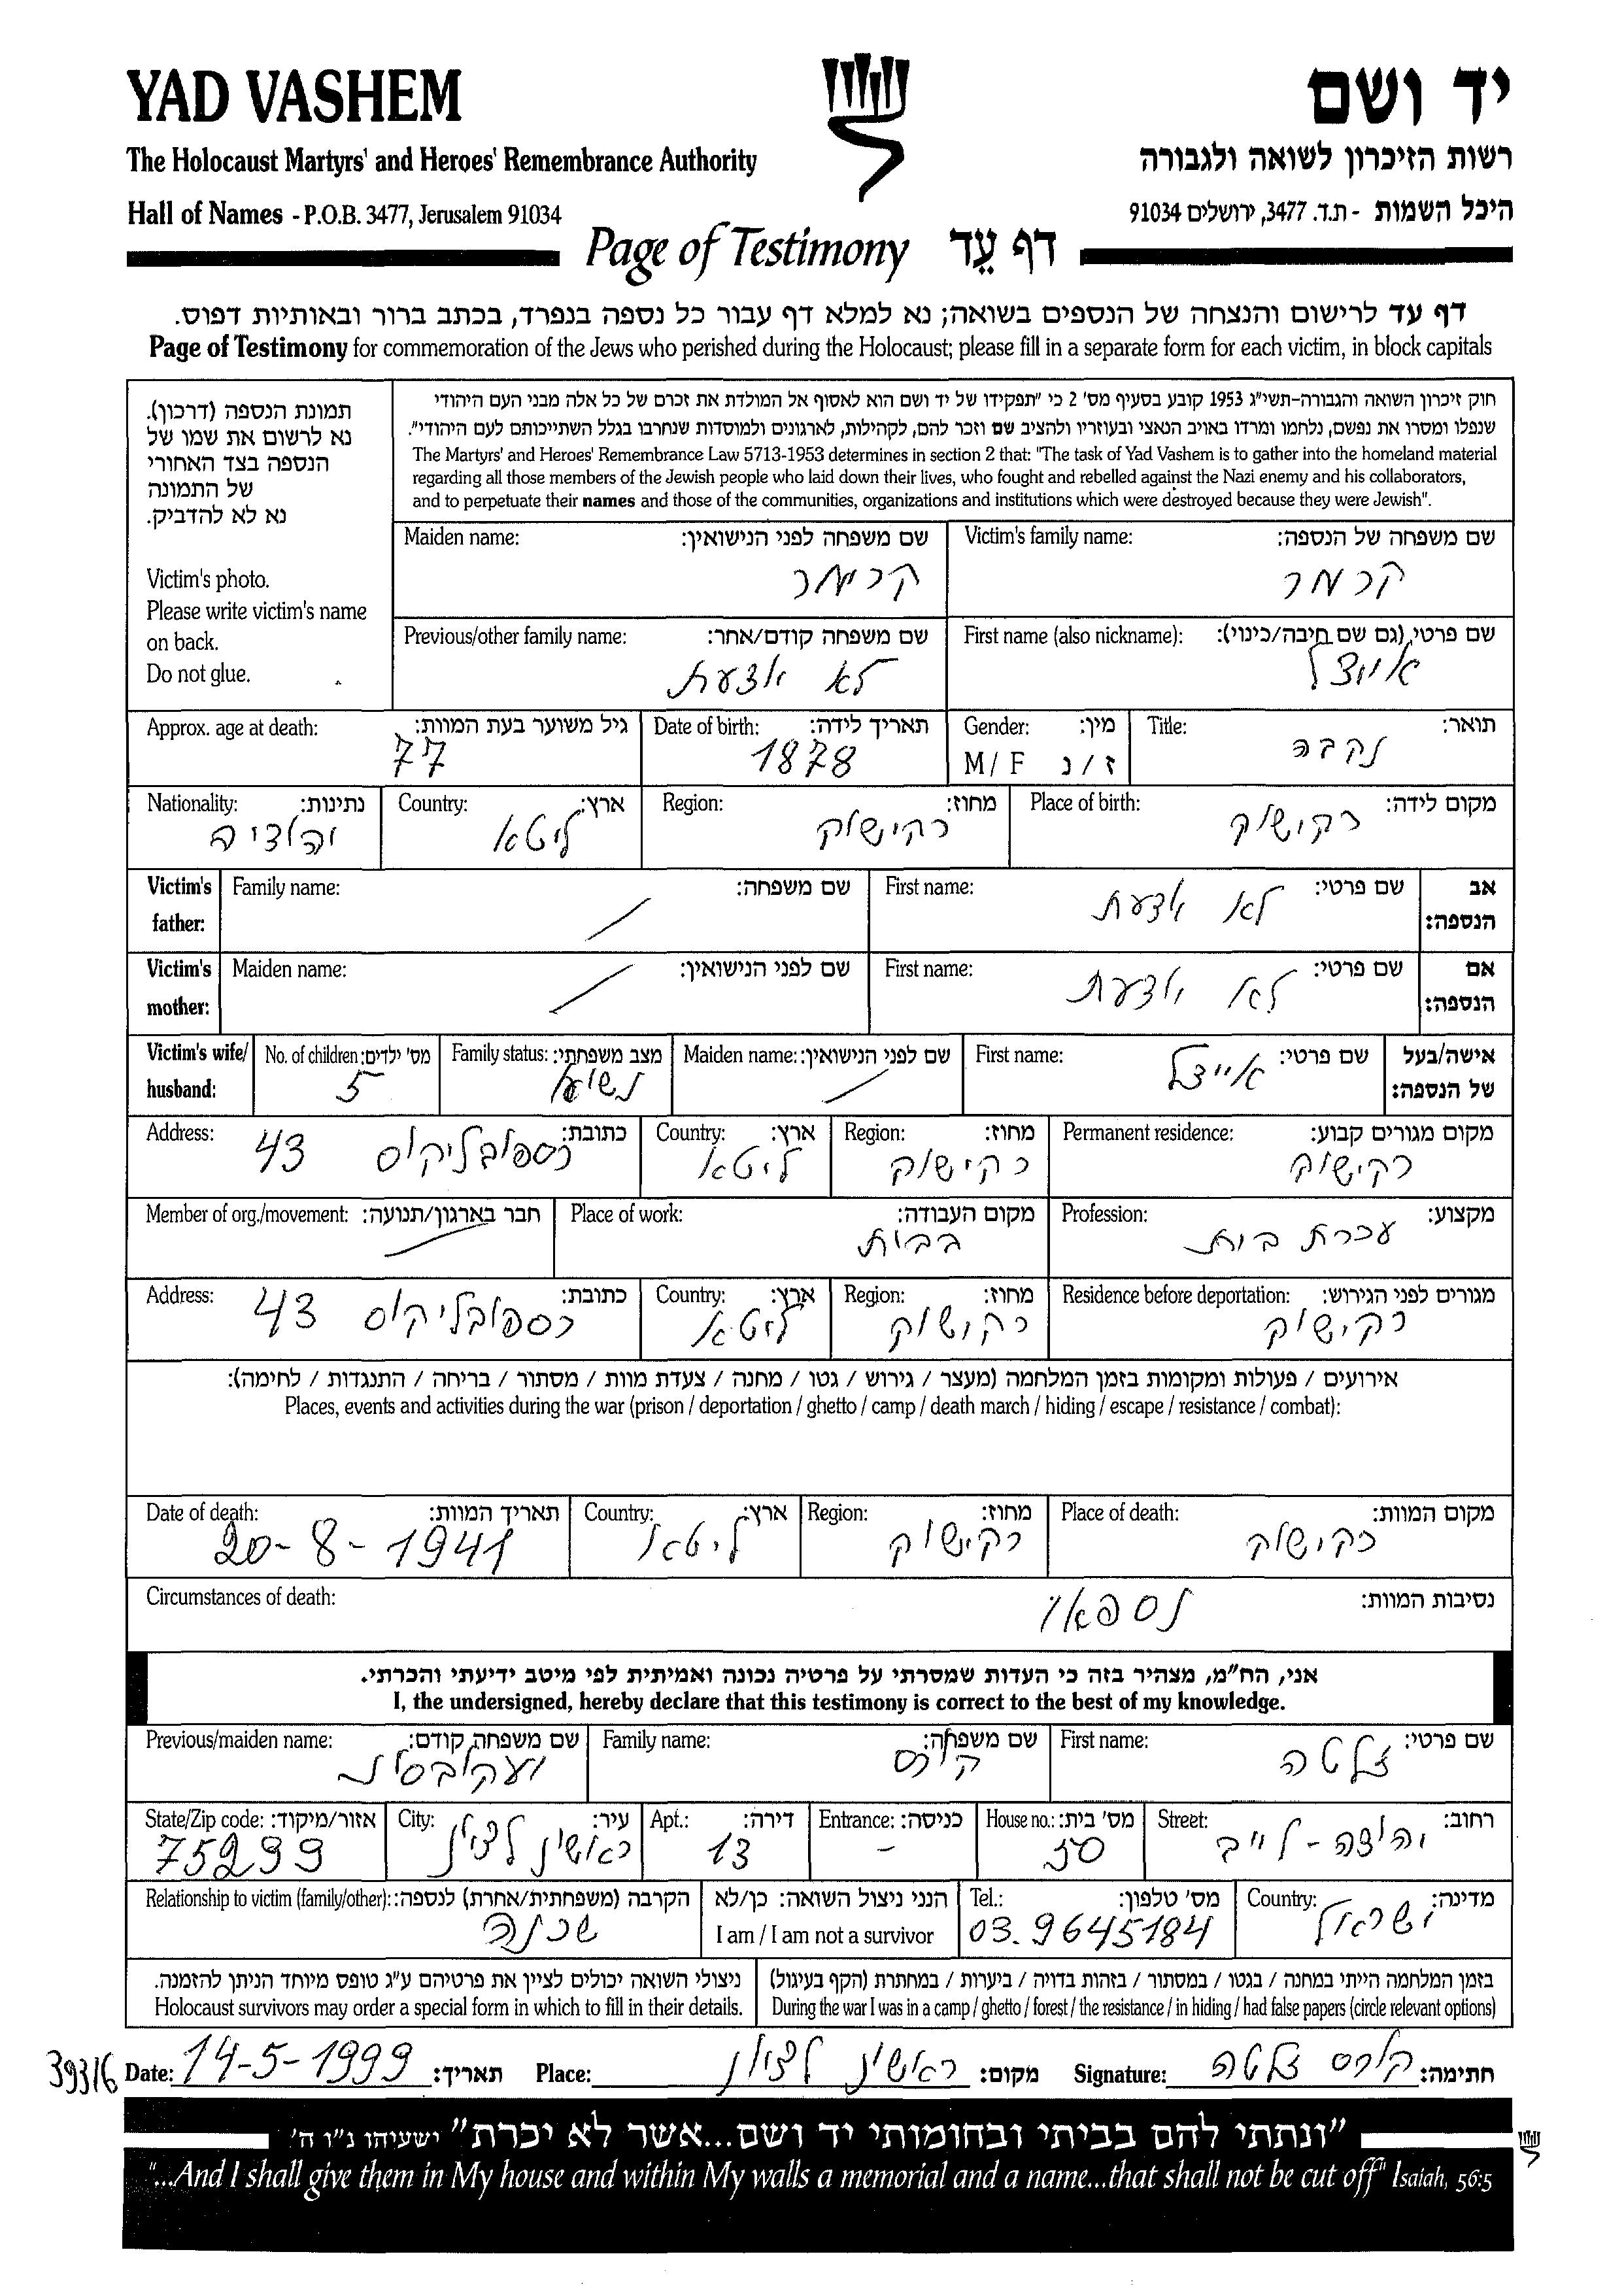 YAD VASHEM
יד ושם
The Holocaust Martyrs' and Heroes' Remembrance Authority
רשות הזיכרון לשואה ולגבורה
Hall of Names - P.O.B. 3477, Jerusalem 91034
היכל השמות - ת.ד. 3477, ירושלים 91034
Page of Testimony דף עֵד
דף עד לרישום והנצחה של הנספים בשואה; נא למלא דף עבור כל נספה בנפרד, בכתב ברור ובאותיות דפוס.
Page of Testimony for commemoration of the Jews who perished during the Holocaust; please fill in a separate form for each victim, in block capitals
תמונת הנספה (דרכון).
נא לרשום את שמו של
הנספה בצד האחורי
של התמונה
נא לא להדביק.
Victim's photo.
Please write victim's name
on back.
Do not glue.
חוק זיכרון השואה והגבורה-תשי"ג 1953 קובע בסעיף מס' 2 כי "תפקידו של יד ושם הוא לאסוף אל המולדת את זכרם של כל אלה מבני העם היהודי
שנפלו ומסרו את נפשם, נלחמו ומרדו באויב הנאצי ובעוזריו ולהציב שם וזכר להם, לקהילות, לארגונים ולמוסדות שנחרבו בגלל השתייכותם לעם היהודי".
The Martyrs' and Heroes' Remembrance Law 5713-1953 determines in section 2 that: "The task of Yad Vashem is to gather into the homeland material
regarding all those members of the Jewish people who laid down their lives, who fought and rebelled against the Nazi enemy and his collaborators,
and to perpetuate their names and those of the communities, organizations and institutions which were destroyed because they were Jewish".
Victim's family name: שם משפחה של הנספה:
קרמר
Maiden name: שם משפחה לפני הנישואין:
קרימר
First name (also nickname): שם פרטי (גם שם חיבה/כינוי):
Previous/other family name: שם משפחה קודם/אחר:
לא יודעת
Title: תואר:
נקבה
Gender: מין:
M / F ז / נ
Date of birth: תאריך לידה:
1878
Approx. age at death: גיל משוער בעת המוות:
77
Place of birth: מקום לידה:
רקישוק
Region: מחוז:
רקישוק
Country: ארץ:
ליטא
Nationality: נתינות:
יהודיה
אב הנספה:
First name: שם פרטי:
לא יודעת
Family name: שם משפחה:
/
Victim's father:
אם הנספה:
First name: שם פרטי:
לא יודעת
Maiden name: שם לפני הנישואין:
/
Victim's mother:
אישה/בעל של הנספה:
First name: שם פרטי:
אייצל
Maiden name: שם לפני הנישואין:
/
Family status: מצב משפחתי:
נשוא
No. of children: מס' ילדים:
5
Victim's wife/ husband:
Permanent residence: מקום מגורים קבוע:
רקישוק
Region: מחוז:
רקישוק
Country: ארץ:
ליטא
Address: כתובת:
רספובליקוס 43
Profession: מקצוע:
עכרת בית
Place of work: מקום העבודה:
בבית
Member of org./movement: חבר בארגון/תנועה:
Residence before deportation: מגורים לפני הגירוש:
רקישוק
Region: מחוז:
רקישוק
Country: ארץ:
ליטא
Address: כתובת:
רספובליקוס 43
אירועים / פעולות ומקומות בזמן המלחמה (מעצר / גירוש / גטו / מחנה / צעדת מוות / מסתור / בריחה / התנגדות / לחימה):
Places, events and activities during the war (prison / deportation / ghetto / camp / death march / hiding / escape / resistance / combat):
Place of death: מקום המוות:
רקישוק
Region: מחוז:
רקישוק
Country: ארץ:
ליטא
Date of death: תאריך המוות:
20-8-1941
Circumstances of death: נסיבות המוות:
נספאו
אני, הח"מ, מצהיר בזה כי העדות שמסרתי על פרטיה נכונה ואמיתית לפי מיטב ידיעתי והכרתי.
I, the undersigned, hereby declare that this testimony is correct to the best of my knowledge.
First name: שם פרטי:
זלטה
Family name: שם משפחה:
קורס
Previous/maiden name: שם משפחה קודם:
Street: רחוב:
House no.: מס' בית:
50
Entrance: כניסה:
-
Apt.: דירה:
13
City: עיר:
ראשין לציון
State/Zip code: אזור/מיקוד:
75299
Country: מדינה:
ישראל
Tel.: מס' טלפון:
03.9645184
הנני ניצול השואה: כן/לא
I am / I am not a survivor
Relationship to victim (family/other): הקרבה (משפחתית/אחרת) לנספה:
שכנה
בזמן המלחמה הייתי במחנה / בגטו / במסתור / בזהות בדויה / ביערות / במחתרת (הקף בעיגול)
During the war I was in a camp / ghetto / forest / the resistance / in hiding / had false papers (circle relevant options)
ניצולי השואה יכולים לציין את פרטיהם ע"ג טופס מיוחד הניתן להזמנה.
Holocaust survivors may order a special form in which to fill in their details.
39316 Date: 14-5-1999 תאריך: Place: ראשין לציון מקום: Signature: קורס זלטה חתימה:
"ונתתי להם בביתי ובחומותי יד ושם...אשר לא יכרת" ישעיהו נ"ו ה'
"...And I shall give them in My house and within My walls a memorial and a name...that shall not be cut off" Isaiah, 56:5